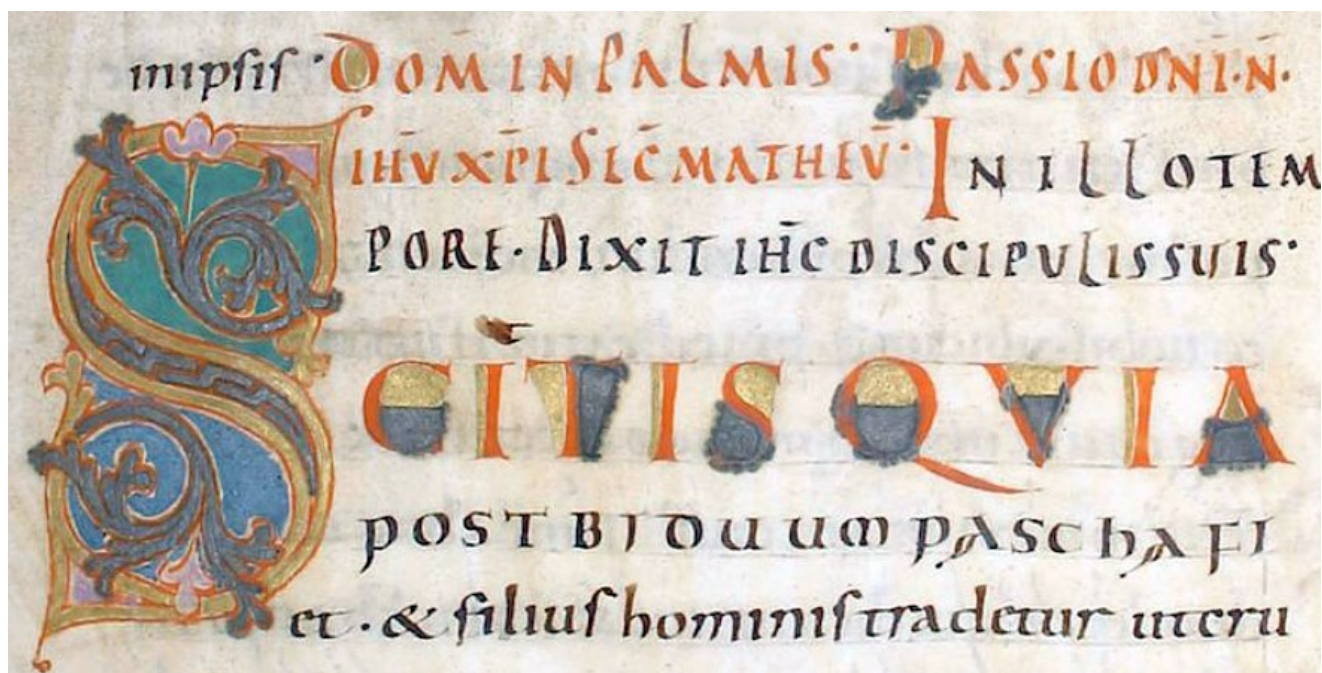 inipsis · DOM̄ IN PALMIS · PASSIO DN̄I · N̄ ·
IHV̄ XP̄I SEC̄ MATHEV̄ · IN ILLO TEM
PORE · DIXIT IHC̄ DISCIPULIS SUIS ·
SCITIS QVIA
POST BIDUUM PASCHA FI
et · & filius hominis tradetur ut cru